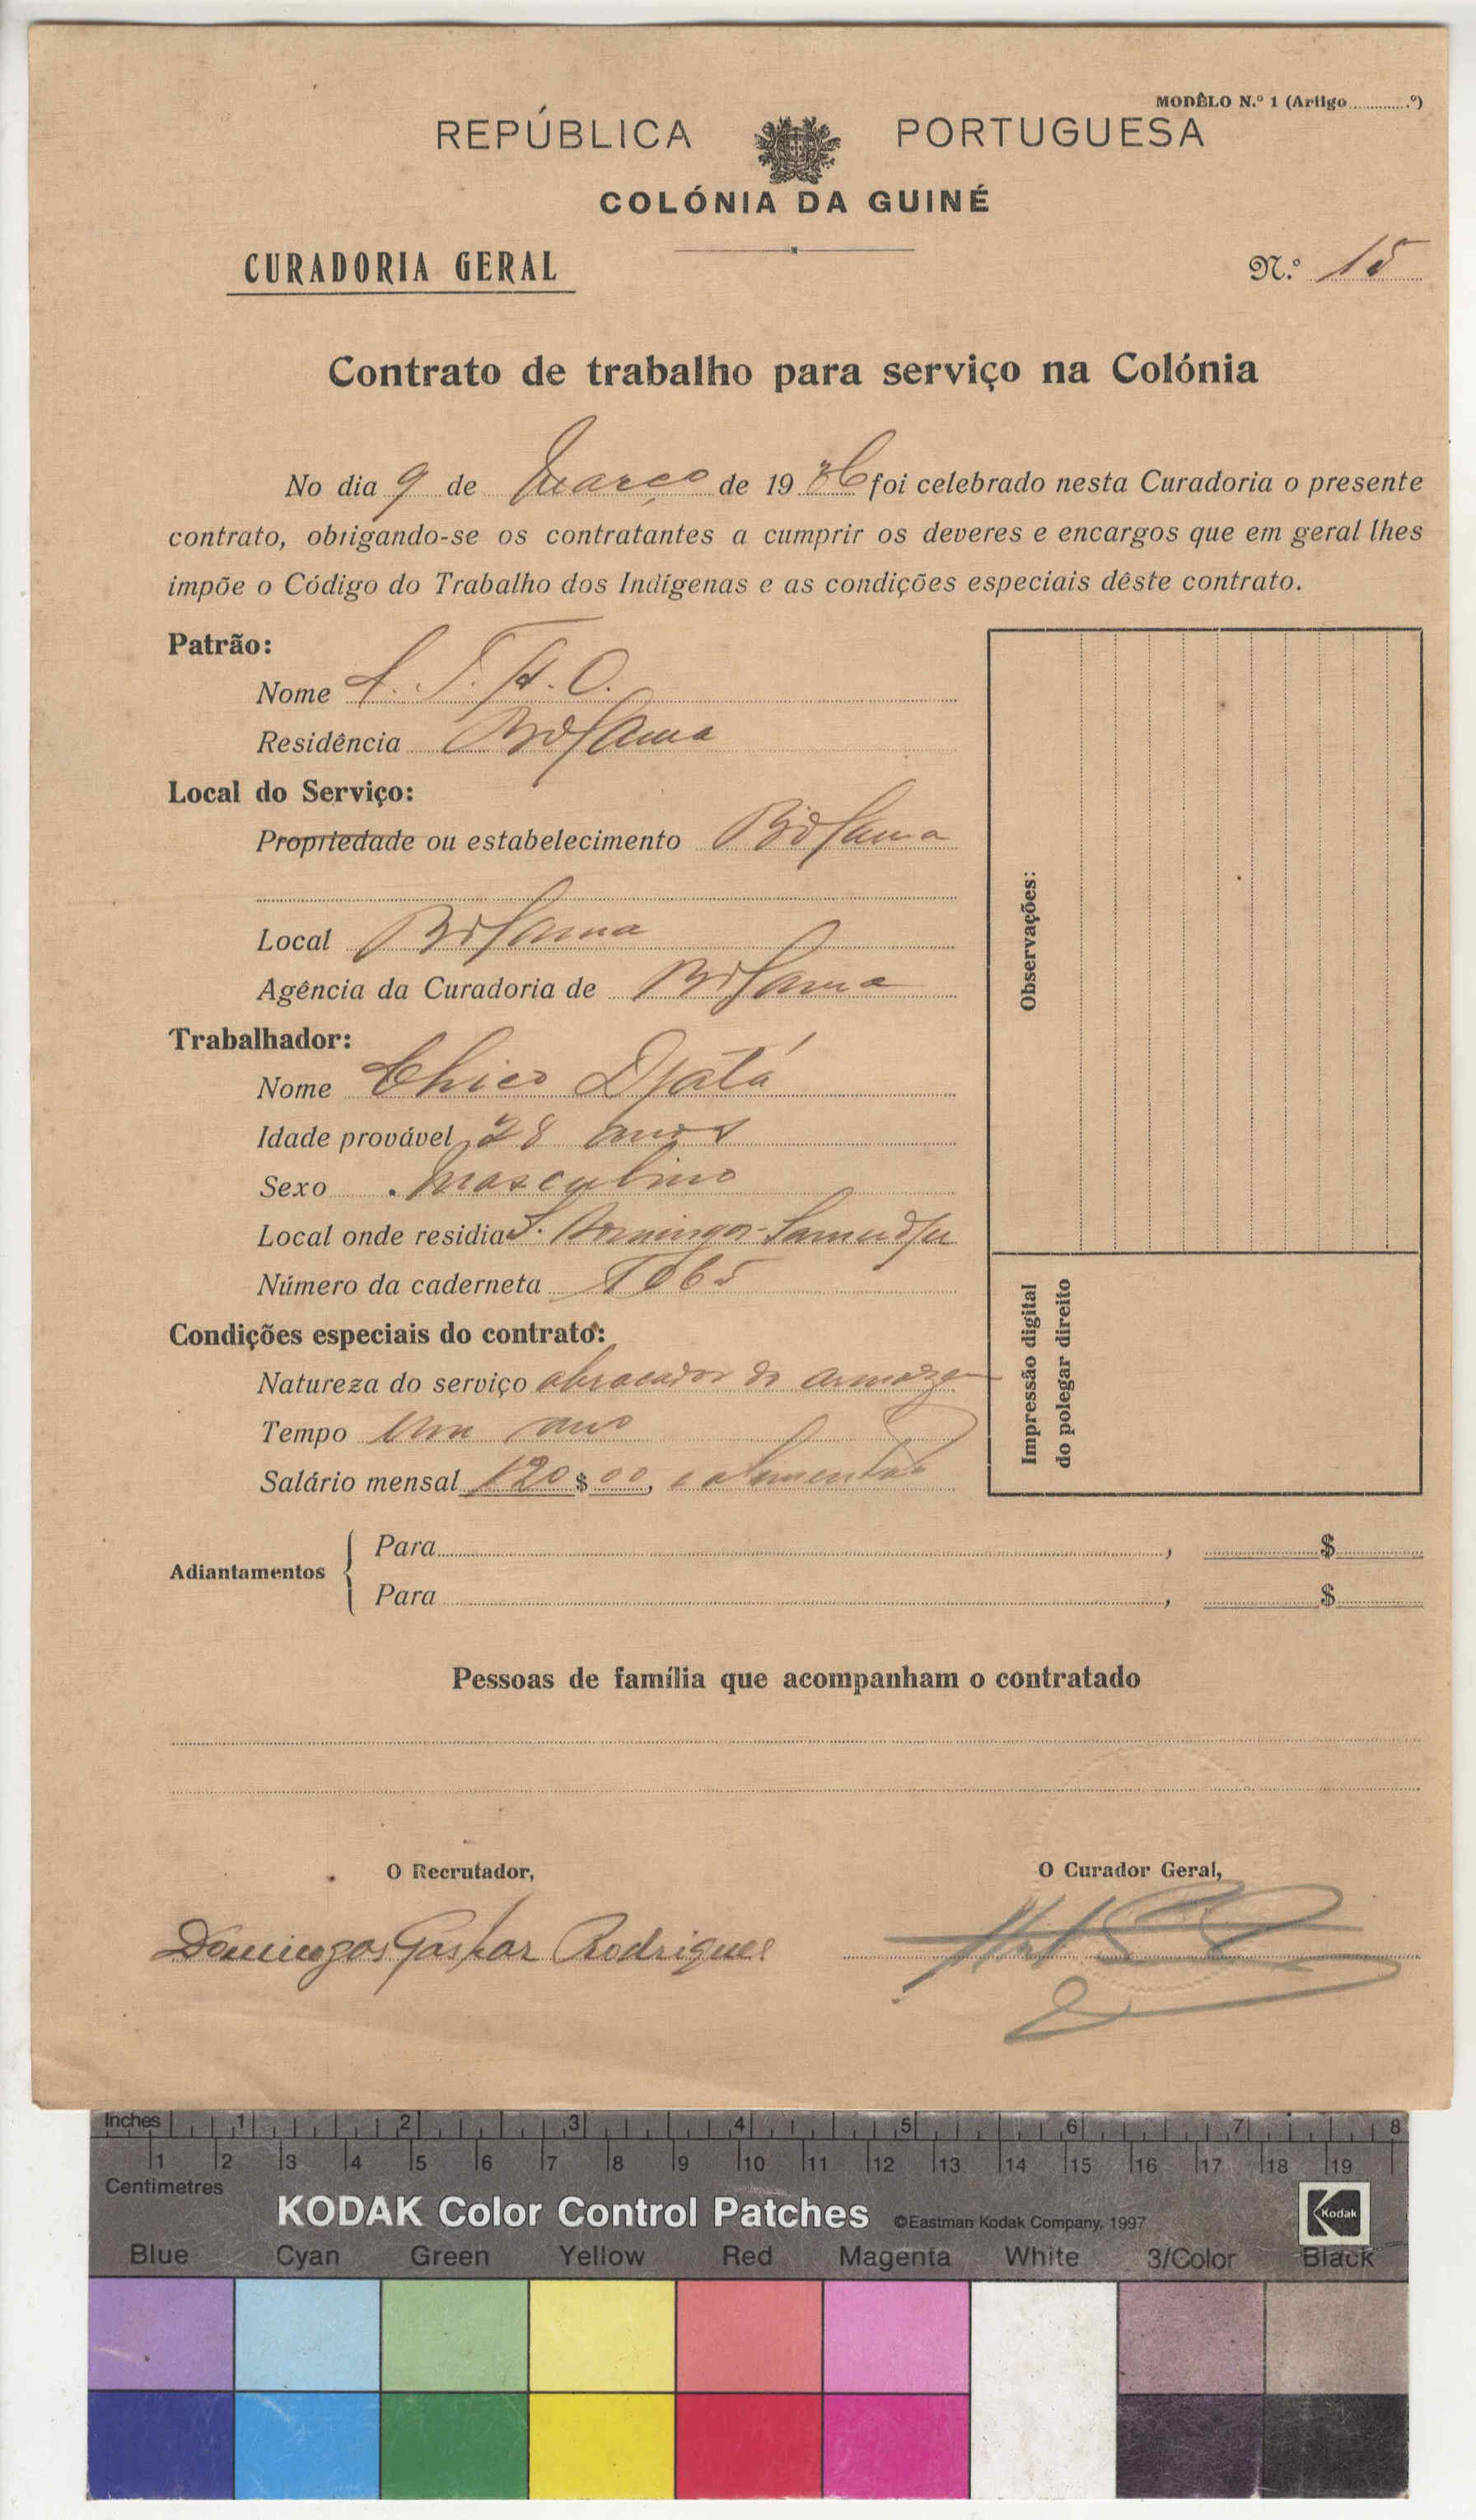 MODÊLO N.º 1 (Artigo ............º)
REPÚBLICA PORTUGUESA
COLÓNIA DA GUINÉ
CURADORIA GERAL
N.º 15
Contrato de trabalho para serviço na Colónia
No dia 9 de Março de 1936 foi celebrado nesta Curadoria o presente
contrato, obrigando-se os contratantes a cumprir os deveres e encargos que em geral lhes
impõe o Código do Trabalho dos Indígenas e as condições especiais dêste contrato.
Patrão:
Nome
Residência Bolama
Local do Serviço:
Propriedade ou estabelecimento Bolama
Local Bolama
Agência da Curadoria de Bolama
Trabalhador:
Nome Chico Djatá
Idade provável 28 anos
Sexo masculino
Local onde residia S. Domingos-
Número da caderneta
Condições especiais do contrato:
Natureza do serviço de armazem
Tempo Um ano
Salário mensal 120$00, e alimentação
Observações:
Impressão digital
do polegar direito
Adiantamentos
Para , $
Para , $
Pessoas de família que acompanham o contratado
O Recrutador,
O Curador Geral,
Domingos Gaspar Rodrigues
Inches 1 2 3 4 5 6 7 8
1 2 3 4 5 6 7 8 9 10 11 12 13 14 15 16 17 18 19
Centimetres
KODAK Color Control Patches ©Eastman Kodak Company, 1997
Kodak
Blue Cyan Green Yellow Red Magenta White 3/Color Black